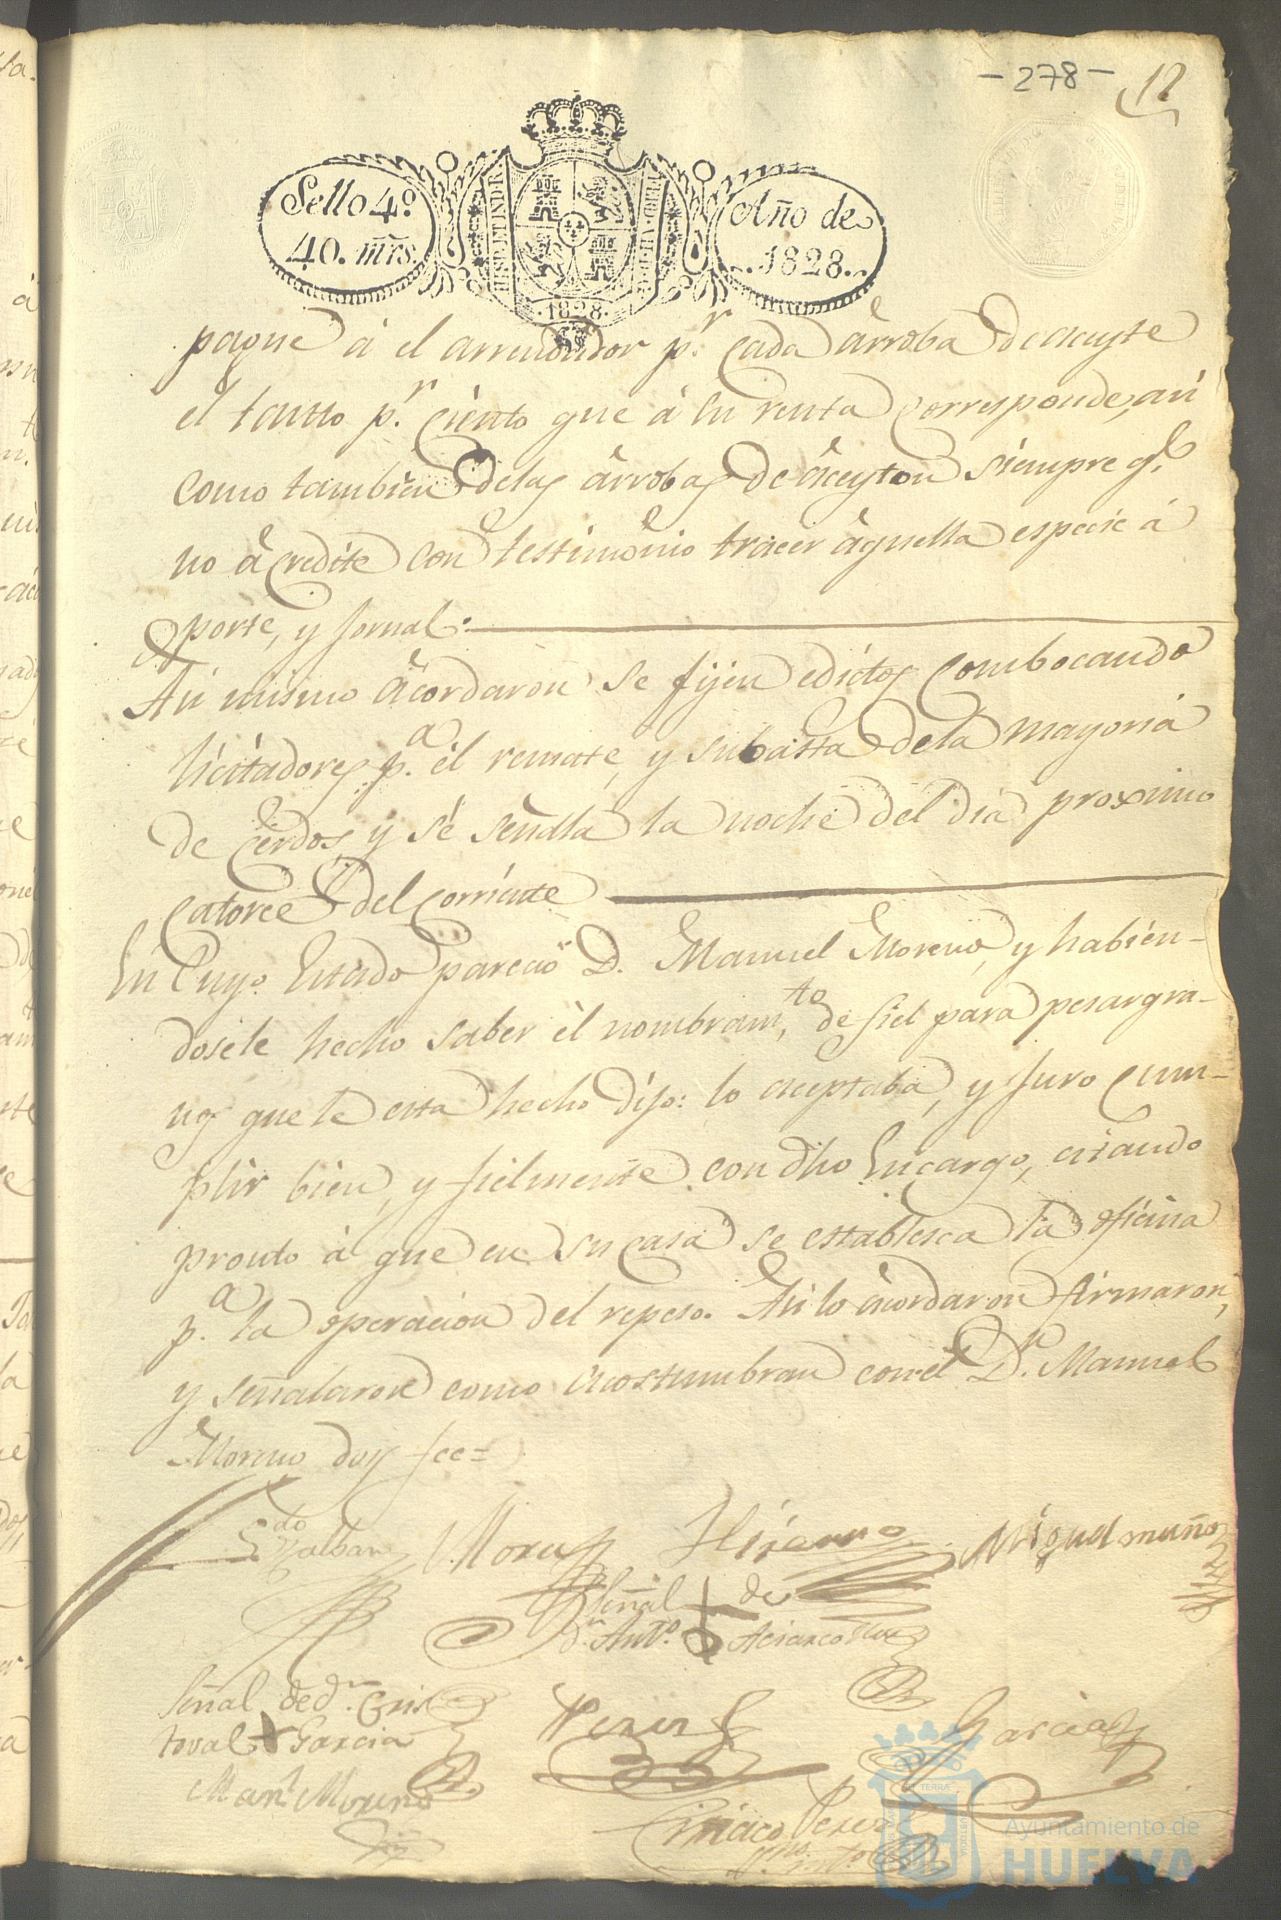 - 278 - 12
Sello 4º
40. mrs.
HISP. ET IND. R.
1828.
Año de
1828.
pague á el arrendador pr. cada árroba de aceyte
el tanto pr. ciento que á su renta corresponde, asi
como tambien delas árrobas de áceyton siempre qe.
no ácredite con testimonio traer áquella especie á
porte, y jornal:
Asi mismo ácordaron se fijen edictos combocando
licitadores pa. él remate, y subasta dela mayoria
de Cerdos, y sé señala la noche del dia proximo
catorce del corriente
En Cuyo Estado pareció D. Manuel Moreno, y habien-
dosele hecho saber él nombramto. de fiel para pesar gra-
nos que le esta hecho dijo: lo aceptaba, y juro cum-
plir bien, y fielmente con dho Encargo, estando
pronto á que en su casa se establesca la oficina
pa. la operacion del repeso. Asi lo ácordaron firmaron,
y señalaron como acostumbran con él Dn. Manuel
Moreno doy fee=
Ldo Balban Mora Miguel muños
Señal de
dn. Anto.
Señal de dn. Cris
toval + Garcia Perez Garcia
Manl Moreno
Ciriaco Perez
Ayuntamiento de
HUELVA